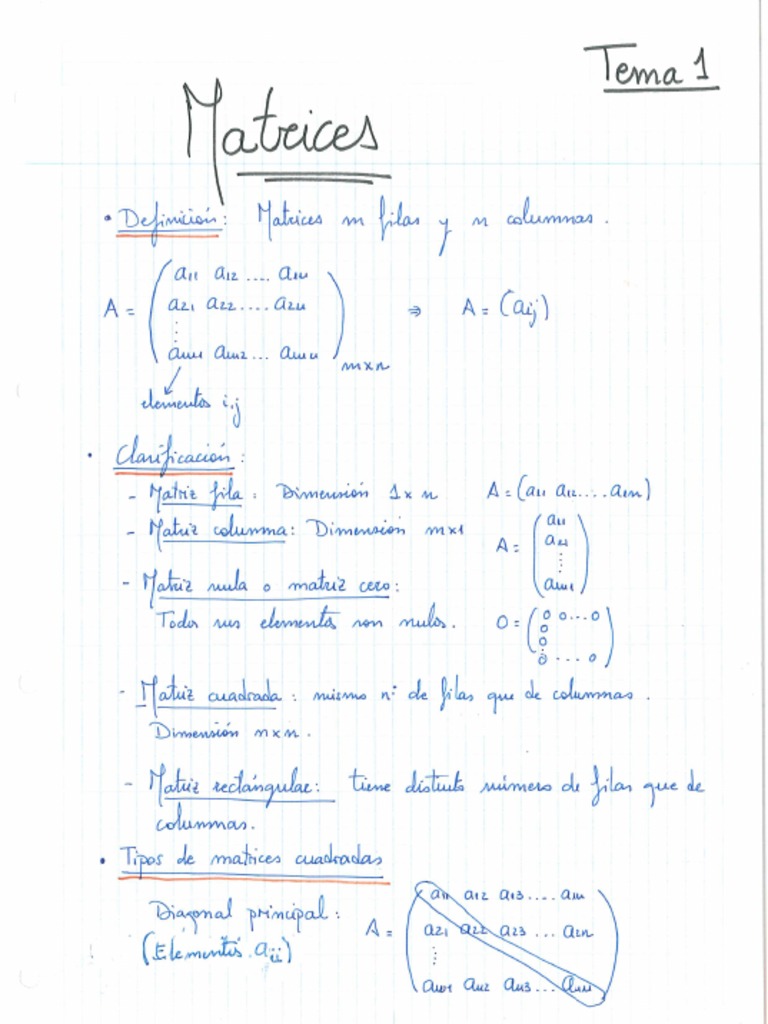 Tema 1
Matrices
• Definición: Matrices m filas y n columnas.
A = ( a11 a12 .... a1n
a21 a22 .... a2n
⋮
am1 am2 ... amn ) mxn ⇒ A = (aij)
elementos i,j
• Clasificación:
- Matriz fila: Dimensión 1xn A = (a11 a12 .... a1n)
- Matriz columna: Dimensión mx1 A = ( a11
a21
⋮
am1 )
- Matriz nula o matriz cero:
Todos sus elementos son nulos. O = ( 0 0 ... 0
0
0
0 .... 0 )
- Matriz cuadrada: mismo nº de filas que de columnas.
Dimensión nxn.
- Matriz rectángular: tiene distinto número de filas que de
columnas.
• Tipos de matrices cuadradas
Diagonal principal:
(Elementos aii)
A = ( a11 a12 a13 .... a1n
a21 a22 a23 ... a2n
⋮
an1 an2 an3 ... ann )